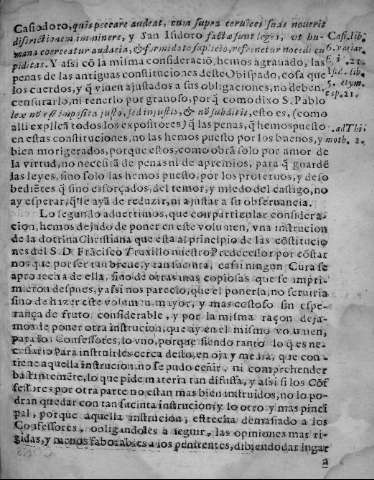 Casiodoro, quis peccare audeat, cum supra cerui ces suas nouerit
districtionem imminere, y San Isidoro factæ sunt leges, vt hu-
mana coerceatur audacia, & formidato suplicio, refrenetur nocẽdi cu-
piditas. Y assi cõ la misma consideraciõ, hemos agrauado, las
penas de las antiguas constituciones deste Obispado, cosa que
los cuerdos, y q̃ viuen ajustados a sus obligaciones, no deben,
censurarlo, ni tenerlo por grauoso, porq̃ como dixo S. Pablo
lex nõ est imposita justo, sed injustis, & nõ subditis, esto es, (como
alli explicã todos los expositores) q̃ las penas, q̃ hemos puesto
en estas constituciones, no las hemos puesto por los buenos, y
bien morigerados, porque estos, como obrã solo por amor de
la virtud, no necesitã de penas ni de apremios, para q̃ guardẽ
las leyes, sino solo las hemos puesto, por los proteruos, y deso
bediẽtes q̃ sino esforçados, del temor, y miedo del castigo, no
ay esperar, q̃ se ayã de reduzir, ni ajustar a su obseruancia.
Lo segundo aduertimos, que con particular considera-
cion, hemos dejado de poner en este volumen, vna instrucion
de la dotrina Christiana que està al principio de las cõstitucio
nes del S. D. Frãcisco Truxillo nuestro Predecessor por cõstar
nos que por ser tan breue, y tan sucinta, casi ningun Cura se
aprouecha de ella, sino de otras mas copiosas que se impri-
mieron despues, y assi nos pareciò, que el ponerla, no seruiria
sino de hazer este volumen mayor, y mas costoso sin espe-
rança de fruto considerable, y por la misma raçon deja-
mos de poner otra instrucion, que ay en el mismo volumen,
para los Confessores, lo vno, porque siendo tanto lo q̃ es ne-
cessario para instruirles cerca desto, en oja y media, que con-
tiene aquella instrucion, no se pudo ceñir, ni comprehender
bastantemẽte, lo que pide materia tan difussa, y assi si los Cõf
fessores por otra parte no estan mas bien instruidos, no lo po-
dran quedar con tan sucinta instrucion: y lo otro y mas princi
pal, porque aquella instrucion, estrecha demasiado a los
Confessores, obligandoles a seguir, las opiniones mas ri-
gidas, y menos faborables a los penitentes, debiendo dar lugar
a